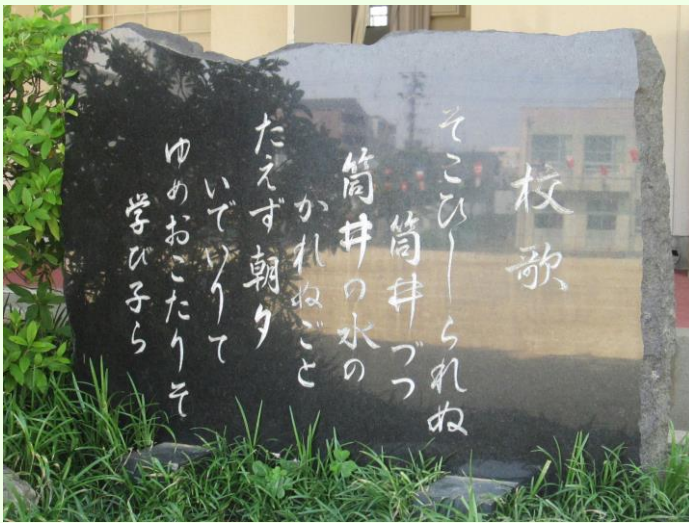 校歌
そこひしられぬ
筒井づつ
筒井の水の
かれぬごと
たえず朝夕
いでいりて
ゆめおこたりそ
学び子ら